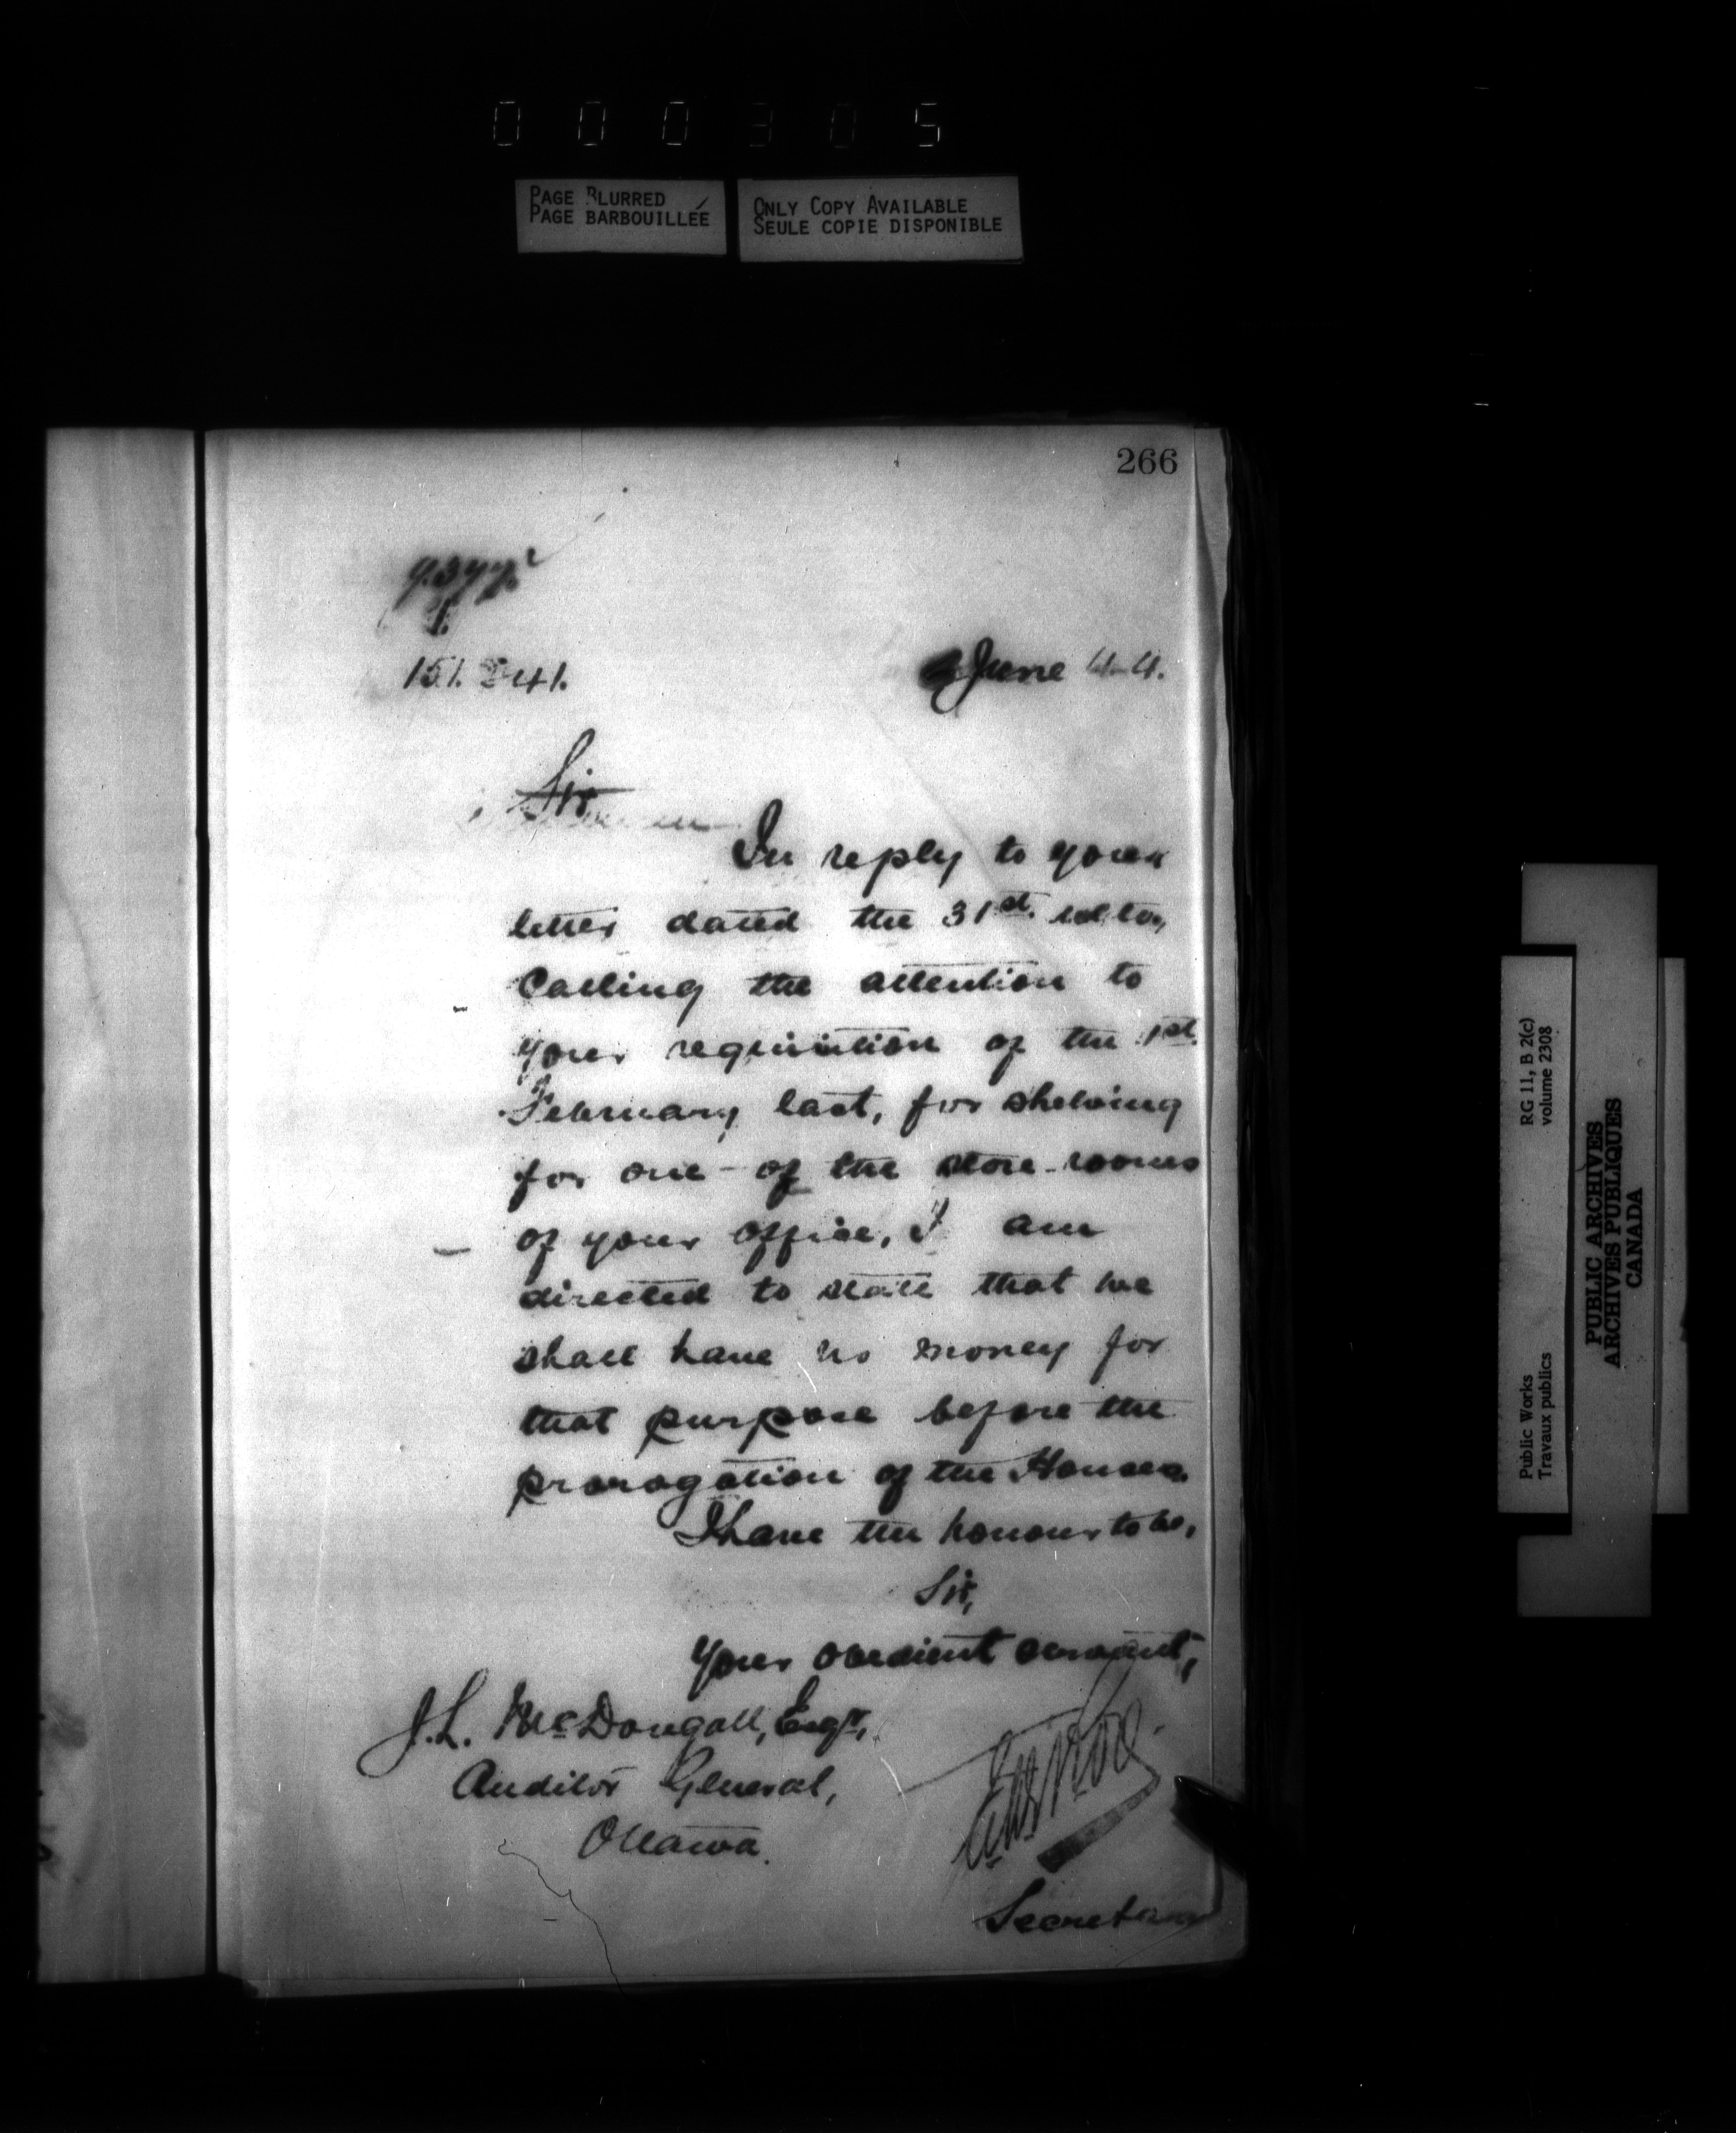 0 0 0 3 0 5
PAGE BLURRED
PAGE BARBOUILLÉE
ONLY COPY AVAILABLE
SEULE COPIE DISPONIBLE
266
June
Sir
In reply to your
letter dated the 31st. ulto,
Calling the attention to
your requisition of the 1st
February last, for shelving
for one of the store-rooms
of your office, I am
directed to state that we
shall have no money for
that purpose before the
prorogation of the Houses.
I have the honour to be,
Sir,
Your obedient servant,
J.L. McDougall, Esqr,
Auditor General,
Ottawa.
Secretary
RG 11, B 2(c)
volume 2308
Public Works
Travaux publics
PUBLIC ARCHIVES
ARCHIVES PUBLIQUES
CANADA